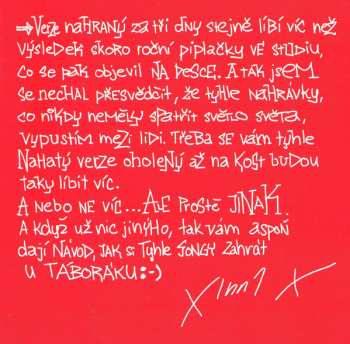 ⇒Verze nahraný za tři dny stejně líbí víc než
výsledek skoro roční piplačky ve studiu,
co se pak objevil NA DESCE. A tak jsem
se nechal přesvědčit, že tyhle nahrávky,
co nikdy neměly spatřit světlo světa,
vypustím mezi lidi. Třeba se vám tyhle
nahatý verze oholený až na kost budou
taky líbit víc.
A nebo ne víc...Ale prostě JINAK.
A když už nic jinýho, tak vám aspoň
dají NÁVOD, jak si tyhle songy zahrát
u TÁBORÁKU :-)